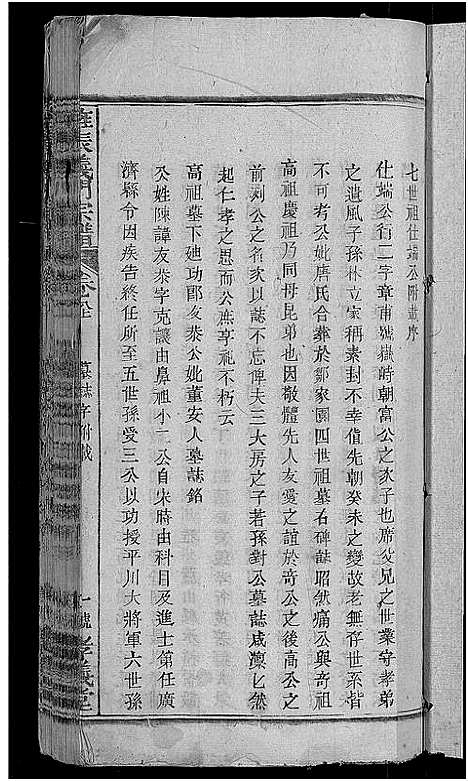 七世祖仕端公附壙序
仕端公行二字章甫號嶽峙朝富公之家子也席父兄之世業守孝弟
之遺風子孫林立家稱素封不幸值先朝癸未之變故老無存世系皆
不可考公妣唐氏合葬於鄒家園四世祖墓右碑誌昭然痛公與奇祖
高祖慶祖乃同母昆弟也因敬體先人友愛之誼於奇公之後高公之
前列公之名亥以誌不忘俾夫三大房之子若孫對公墓誌咸凜匕然
起仁孝之思而公庶享祀不朽云
高祖墓下廸功郎友泰公妣董安人墓誌銘
公姓陳諱友泰字克讓由鼻祖小二公自宋時由科目及進士第任廣
濟縣令因疾告終任所至五世孫受三公以功授平川大將軍六世孫
陳義門宗譜
墓誌序附載
十號 孝義堂